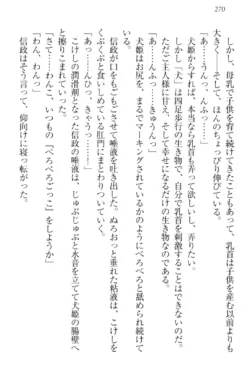 270
しかし、母乳で子供を育て続けてきたこともあって、乳首は子供を産む以前より
大きく、そして、ほんのちょっぴり伸びている。
「あっ……うんっ、ふっ……」
犬姫からすれば、本当なら乳首も弄って欲しい。弄りたい。
しかし「犬」は四足歩行の生き物で、自分で乳首を刺激することはできない。
ただご主人様に甘え、そして幸せになるだけの生き物なのだ。
「あっ……きゅうんっ」
犬姫はお尻を、まるでマーキングされているかのようにべろべろと舐められ続けて
いる。
信政が口をもごもごさせて唾液を吐き出した。ぬろおっと垂れた粘液は、こけしを
くぷくぷと咥えている肛門にまとわりついていく。
「あっ……んひっ、きゃうっ……！」
こけしの潤滑剤となった信政の唾液は、じゅぷじゅぷと水音を立てて犬姫の腸壁へ
と擦りこまれていった。
「さて……わんこ、いつもの『ぺろぺろごっこ』をしようか」
「わん、わんっ」
信政はそう言って、仰向けに寝っ転がった。